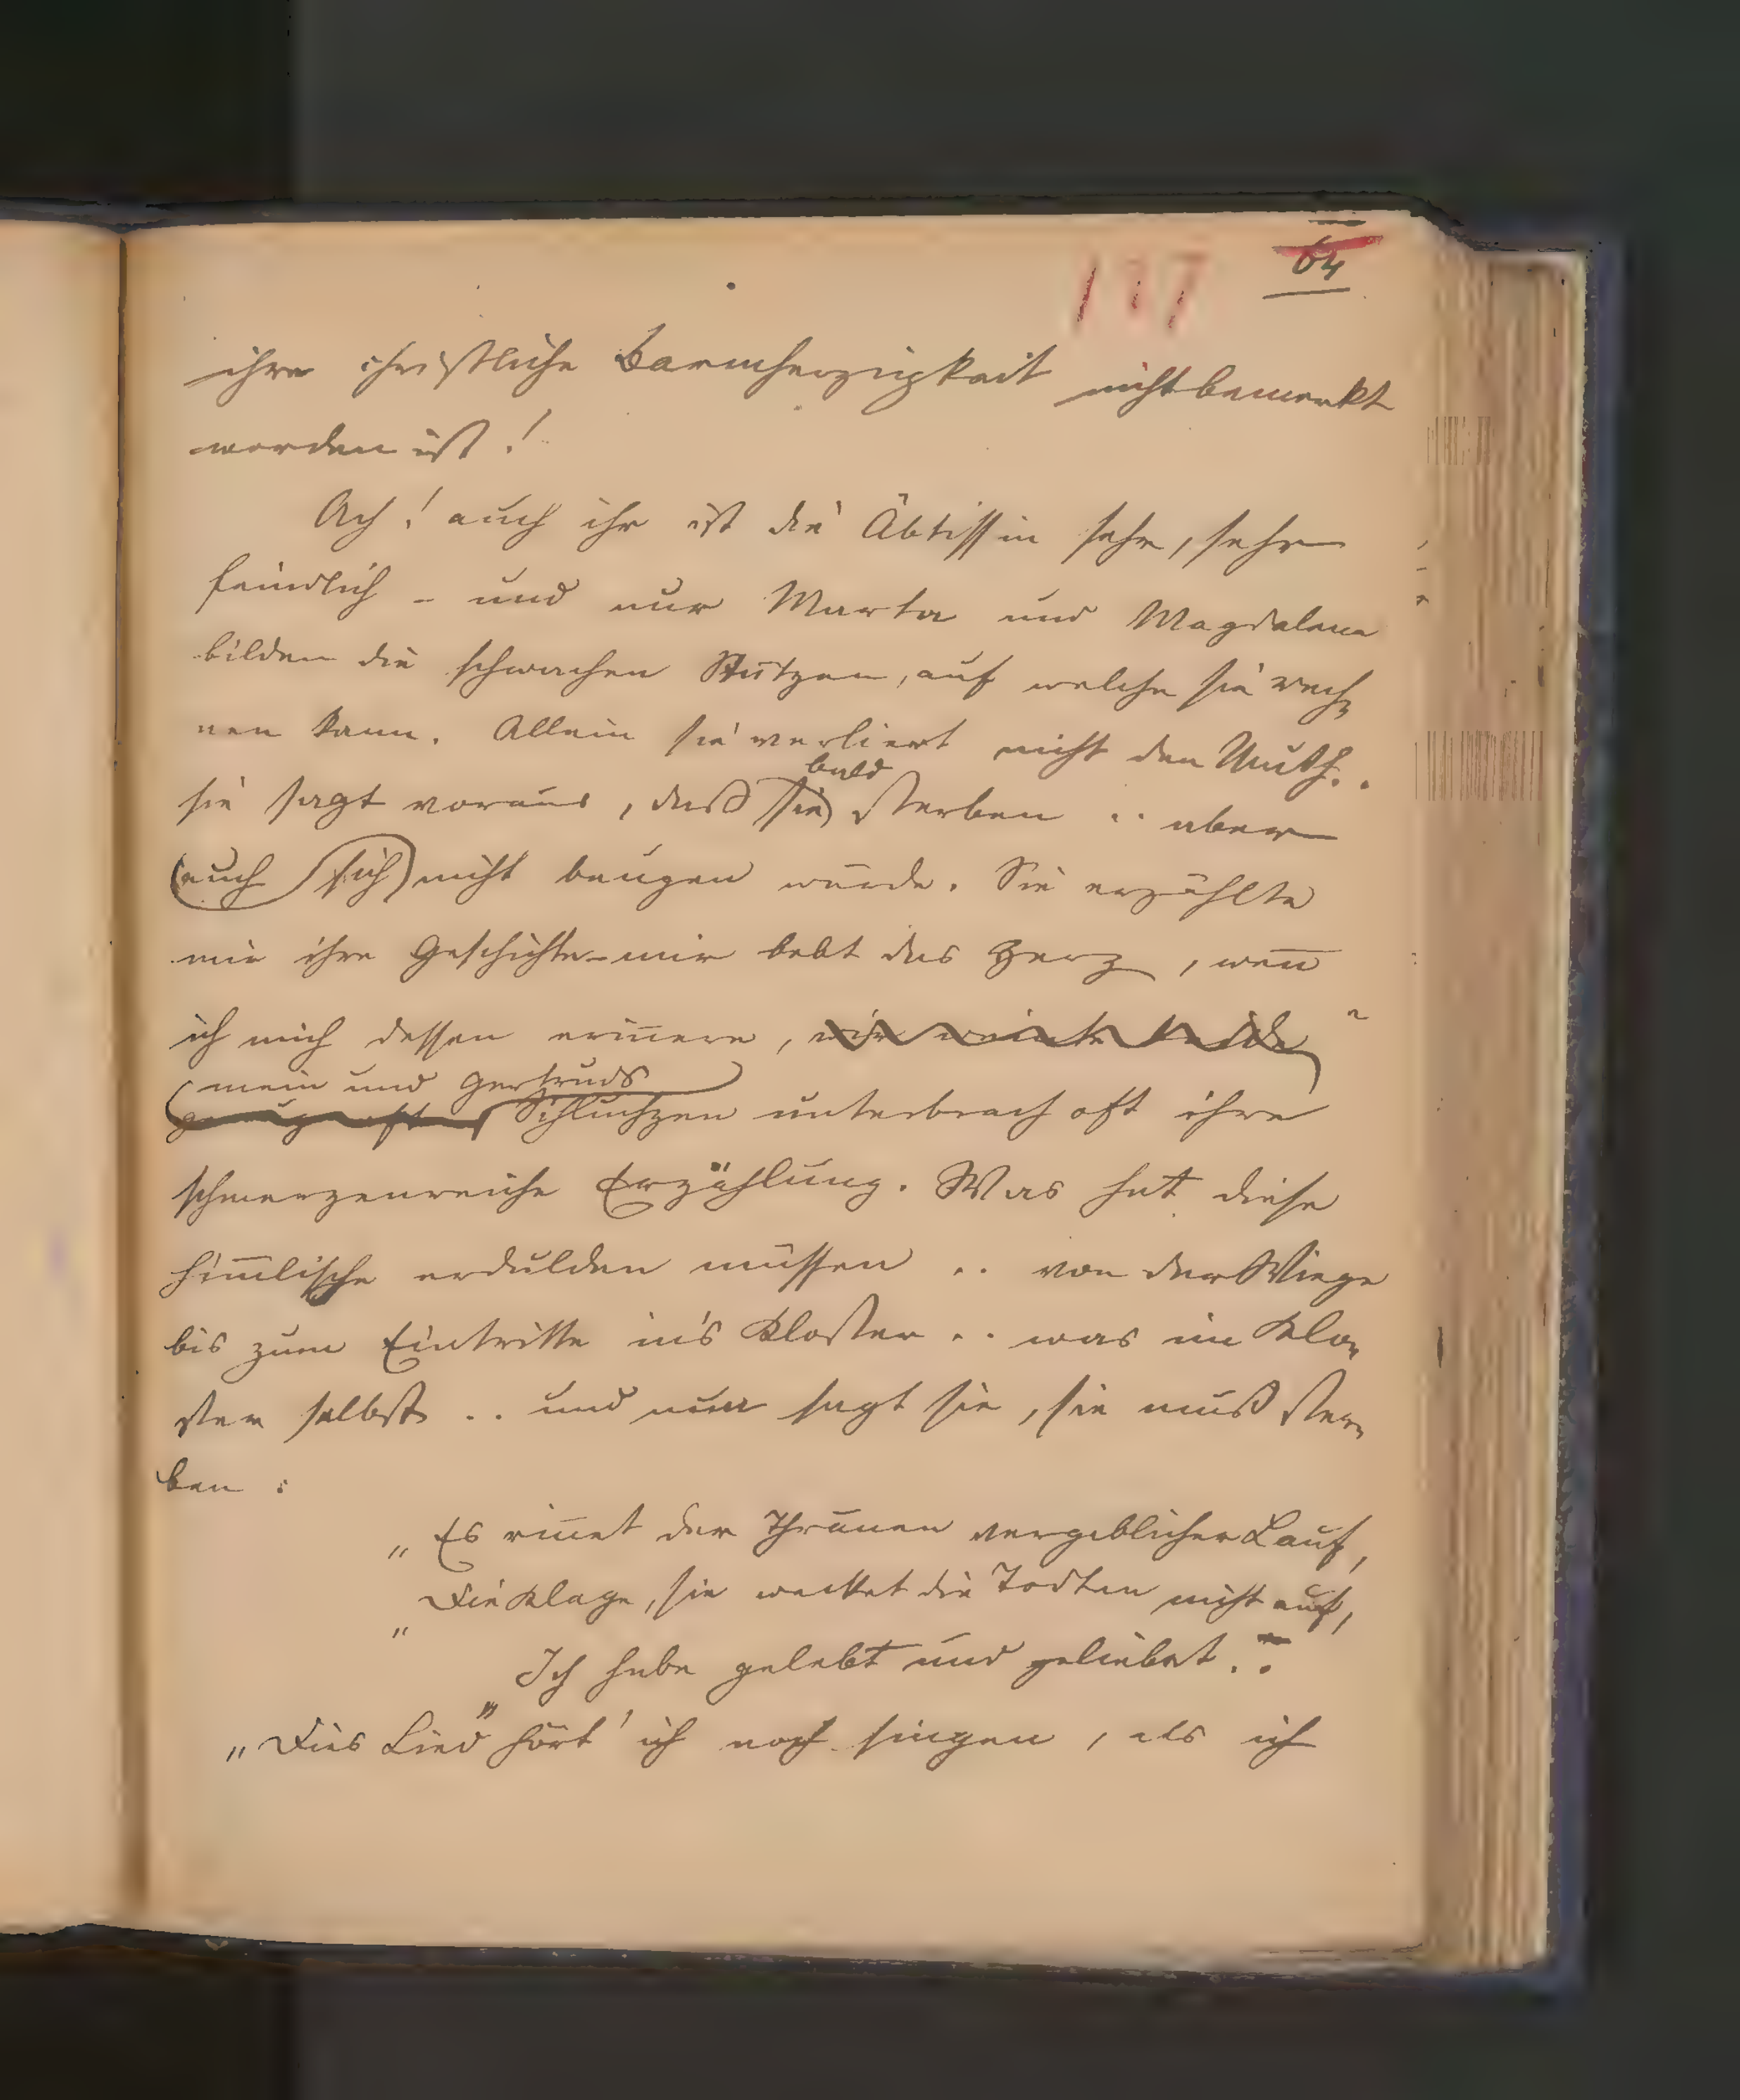 64
ihre christliche Barmherzigkeit nicht bemerkt
worden ist!
Ach! auch ihr ist die Äbtissin sehr, sehr
feindlich - und nur Marta und Magdalena
bilden die schwachen Stützen, auf welche sie rech-
nen kann. Allein sie verliert nicht den Muth..
bald
sie sagt voraus, daß sie sterben .. aber
auch sich nicht beugen würde. Sie erzählte
mir ihre Geschichte - mir bebt das Herz, wen̄
ich mich dessen erin̄ere, wir weinten beide
mein und Gertruds
genug oft Schluchzen unterbrach oft ihre
schmerzenreiche Erzählung. Was hat diese
him̄lische erdulden müssen .. von der Wiege
bis zum Eintritte in's Kloster .. was im Klo-
ster selbst .. und nun sagt sie, sie muß ster-
ben :
„Es rin̄et der Thränen vergeblicher Lauf,
„Die Klage, sie wecket die Todten nicht auf,
Ich habe gelebt und geliebet..
„Dies Lied" hört' ich noch singen, als ich